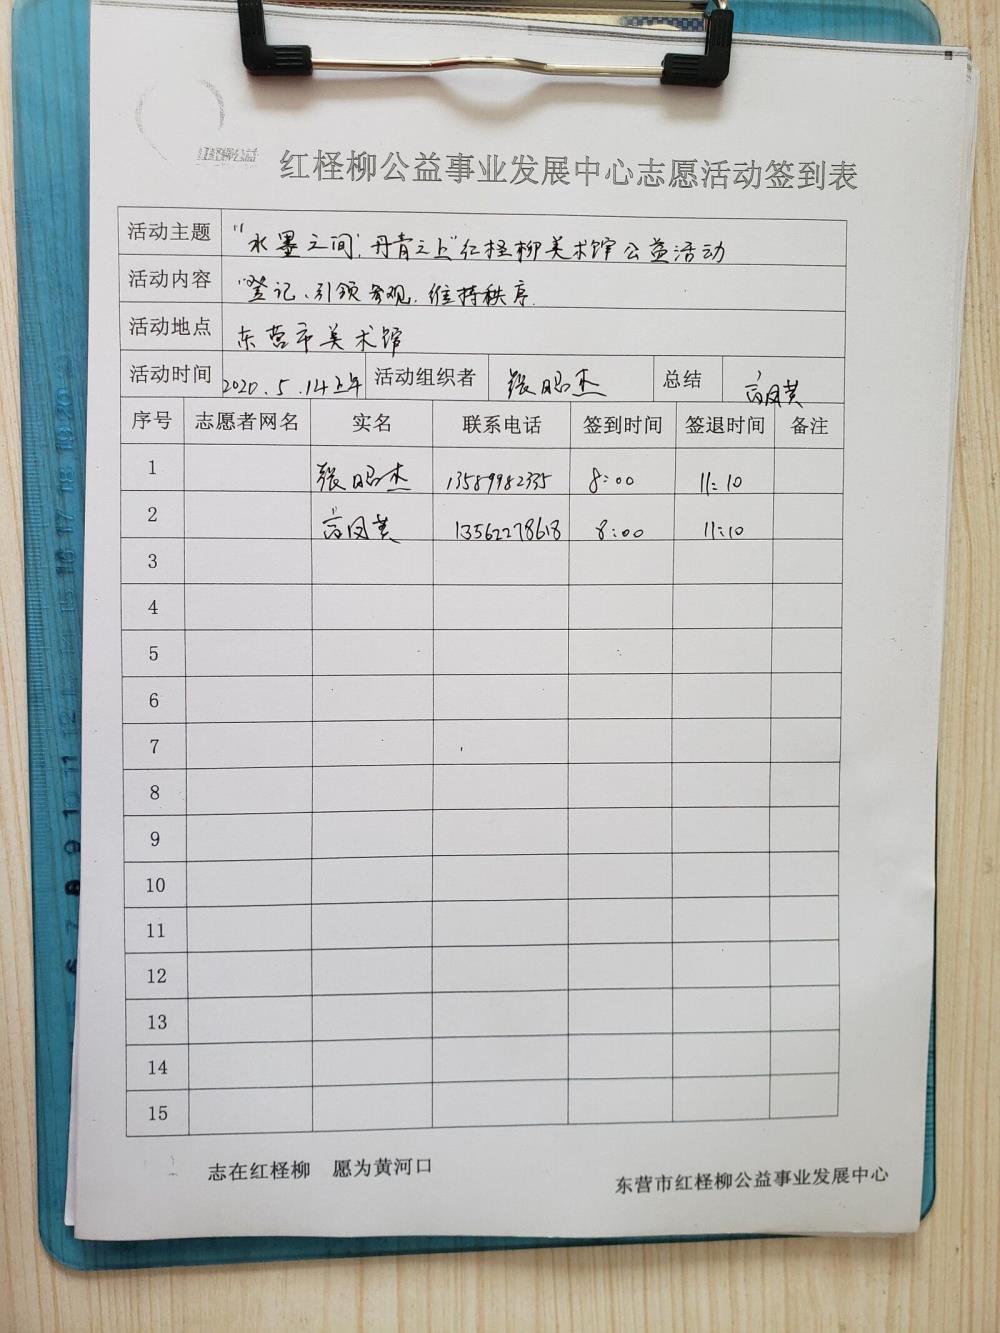 红柽柳公益
红柽柳公益事业发展中心志愿活动签到表
活动主题 “水墨之间,丹青之上”红柽柳美术馆公益活动
活动内容 登记、引领参观、维持秩序.
活动地点 东营市美术馆
活动时间 2020.5.14上午 活动组织者 张昭杰 总结 高凤英
序号 志愿者网名 实名 联系电话 签到时间 签退时间 备注
1 张昭杰 13589982335 8:00 11:10
2 高凤英 13562278618 8:00 11:10
3
4
5
6
7
8
9
10
11
12
13
14
15
志在红柽柳 愿为黄河口
东营市红柽柳公益事业发展中心